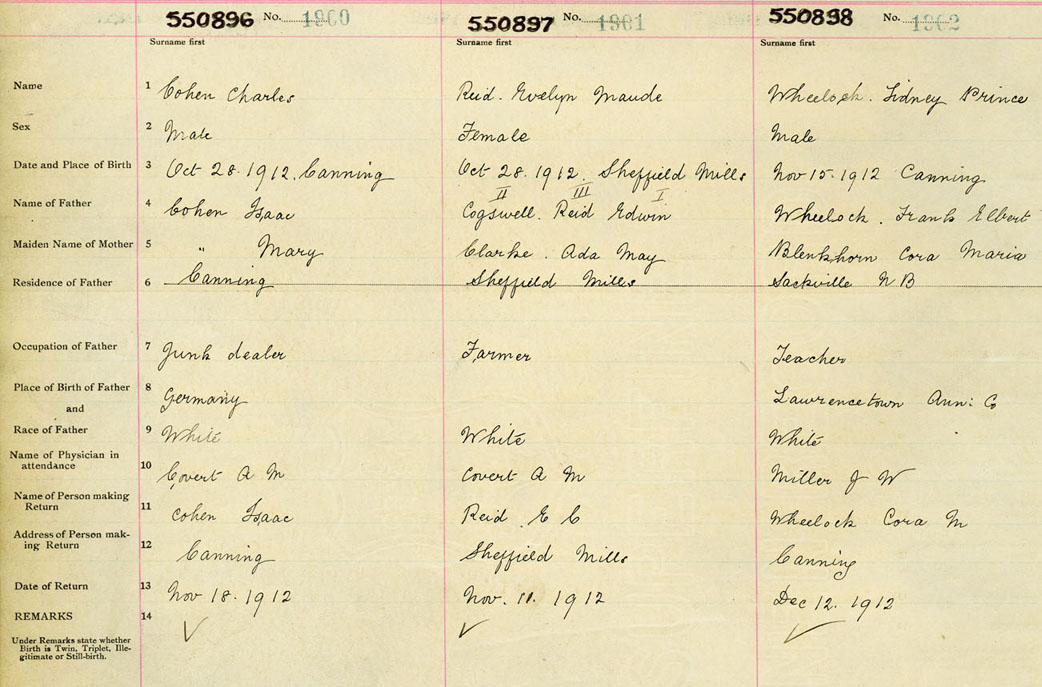 550896 No. 1960 550897 No. 1961 550898 No. 1962
Surname first Surname first Surname first
Name 1 Cohen Charles Reid. Evelyn Maude Wheelock. Sidney Prince
Sex 2 Male Female Male
Date and Place of Birth 3 Oct 28. 1912. Canning Oct 28. 1912. Sheffield Mills Nov 15. 1912 Canning
II III I
Name of Father 4 Cohen Isaac Cogswell. Reid Edwin Wheelock. Frank Elbert
Maiden Name of Mother 5 " Mary Clarke. Ada May Blenkhorn Cora Maria
Residence of Father 6 Canning Sheffield Mills Sackville N B
Occupation of Father 7 Junk dealer Farmer Teacher
Place of Birth of Father 8 Germany Lawrencetown Ann: Co
and
Race of Father 9 White White White
Name of Physician in
attendance 10 Covert A M Covert A M Miller J W
Name of Person making
Return 11 Cohen Isaac Reid E C Wheelock Cora M
Address of Person mak-
ing Return 12 Canning Sheffield Mills Canning
Date of Return 13 Nov 18. 1912 Nov. 11. 1912 Dec 12. 1912
REMARKS 14
Under Remarks state whether
Birth is Twin, Triplet, Ille-
gitimate or Still-birth.